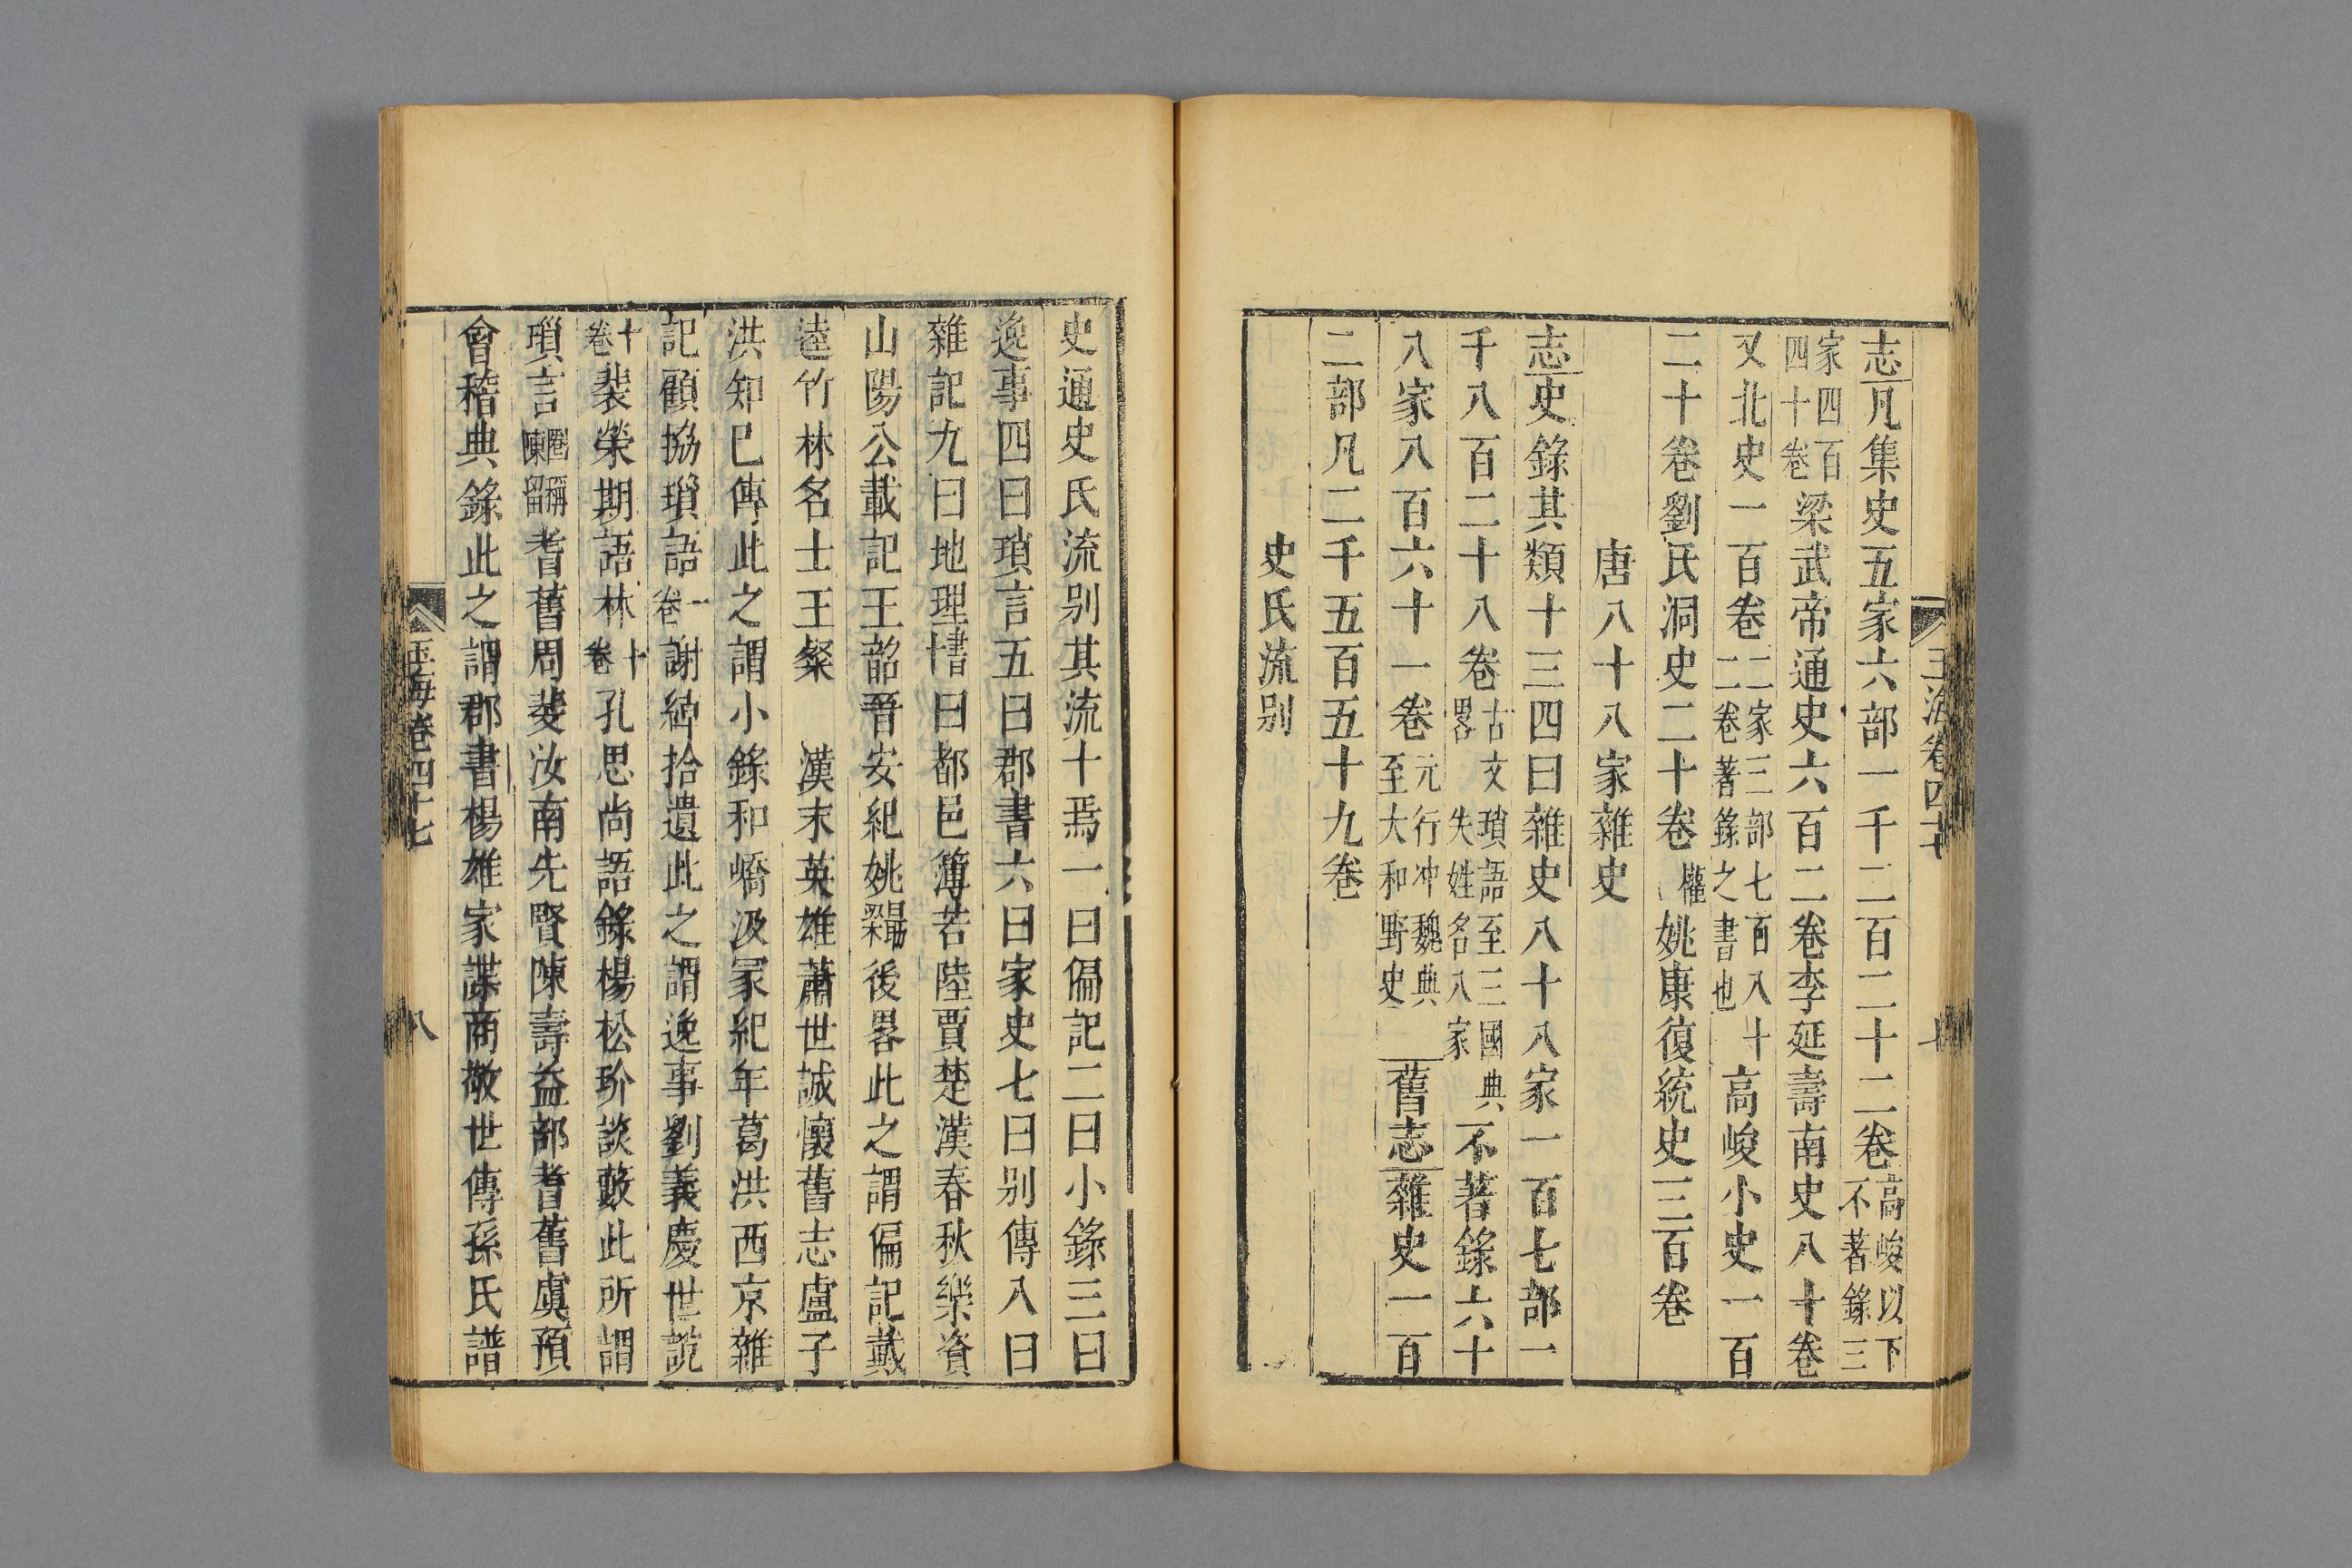 玉海卷四十七 七
志凡集史五家六部一千二百二十二卷高峻以下不著錄三
家四百四十卷梁武帝通史六百二卷李延壽南史八十卷
又北史一百卷二家三部七百八十二卷著錄之書也高峻小史一百
二十卷劉氏洞史二十卷權姚康復統史三百卷
唐八十八家雜史
志史錄其類十三四曰雜史八十八家一百七部一
千八百二十八卷古文瑣語至三國典畧失姓名八家不著錄六十
八家八百六十一卷元行冲魏典至大和野史舊志雜史一百
二部凡二千五百五十九卷
史氏流别
史通史氏流别其流十焉一曰偏記二曰小錄三曰
逸事四曰瑣言五曰郡書六曰家史七曰别傳八曰
雜記九曰地理書十曰都邑簿若陸賈楚漢春秋樂資
山陽公載記王韶晉安紀姚最梁後畧此之謂偏記戴
逵竹林名士王粲 漢末英雄蕭世誠懷舊志盧子
洪知巳傳此之謂小錄和嶠汲冢紀年葛洪西京雜
記顧協瑣語一卷謝綽拾遺此之謂逸事劉義慶世說
十卷裴榮期語林十卷孔思尚語錄楊松玠談藪此所謂
瑣言圈稱陳留耆舊周斐汝南先賢陳壽益部耆舊虞預
會稽典錄此之謂郡書楊雄家諜商敬世傳孫氏譜
玉海卷四十七 八